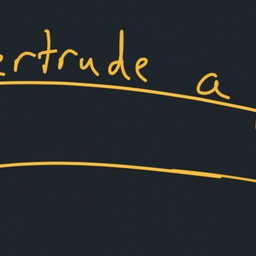 ertrude a